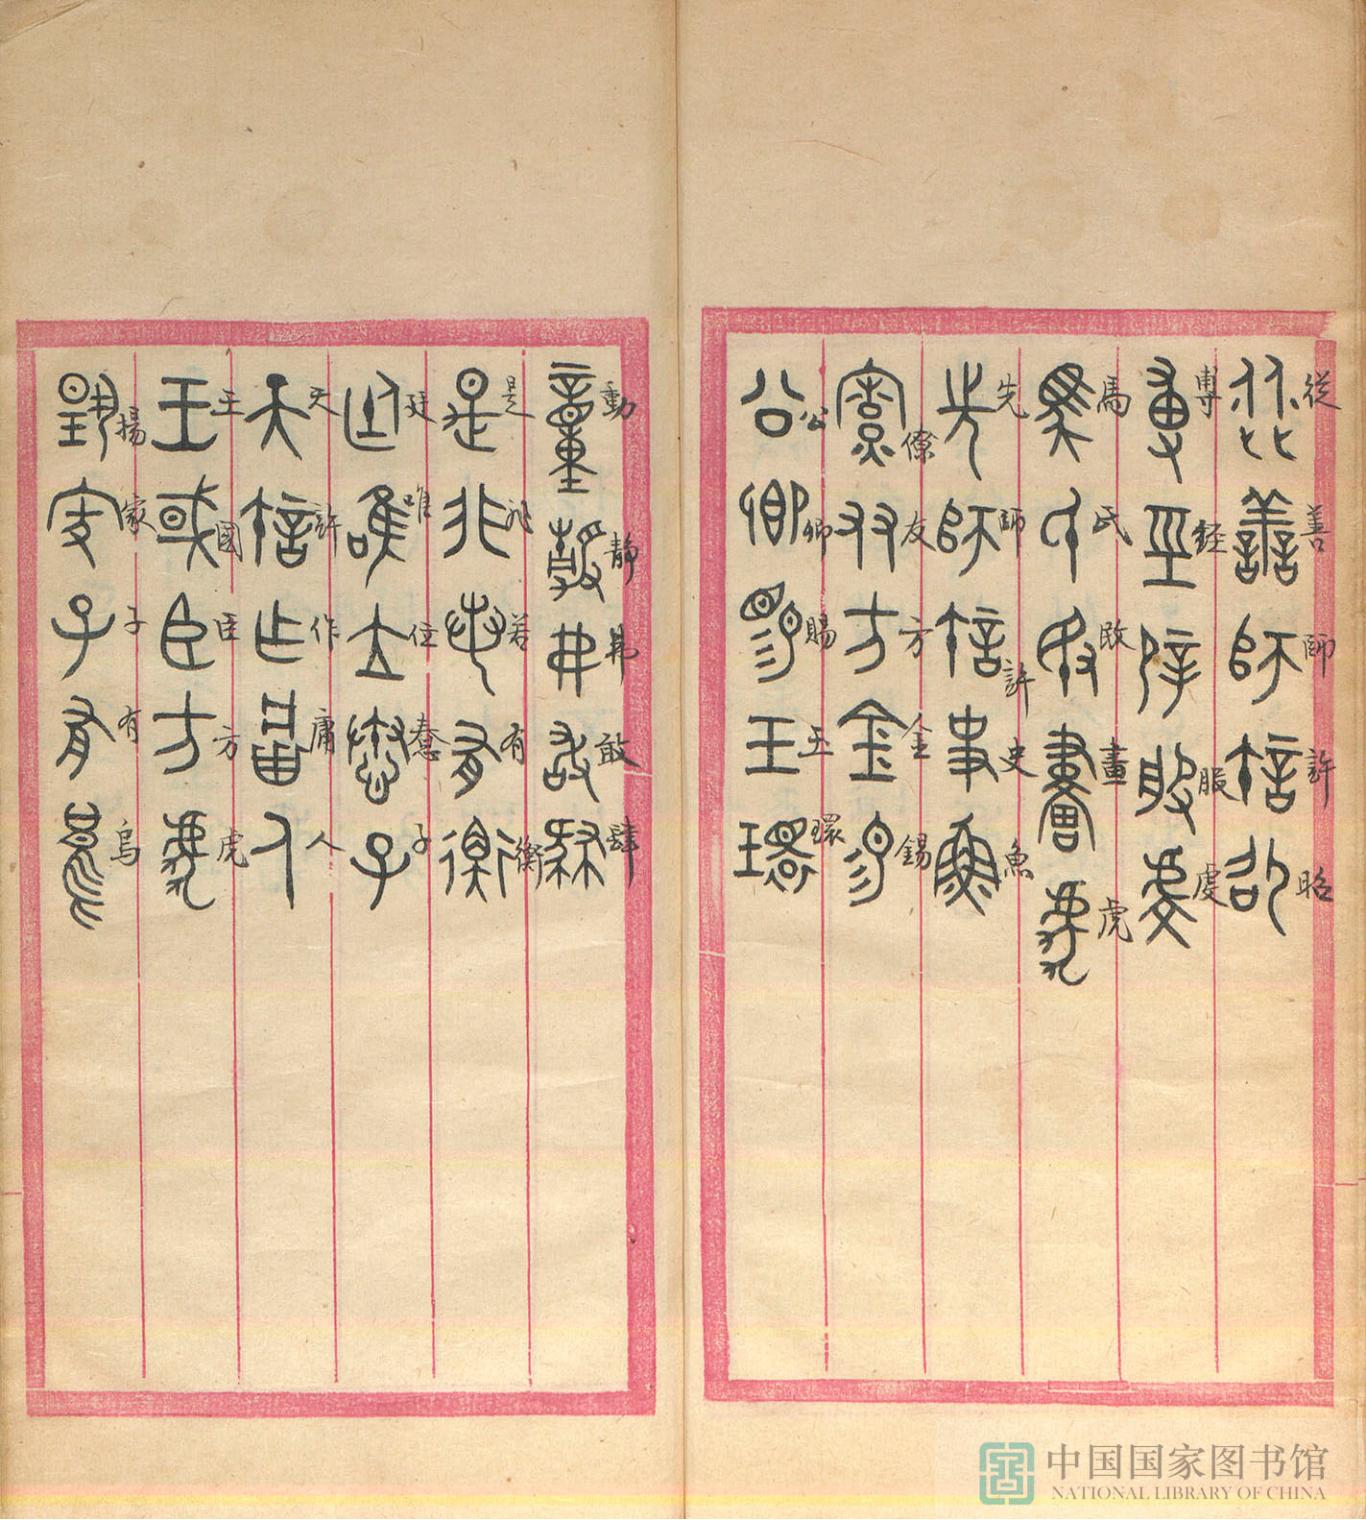 從善師許昭
專經㝆服虔
馬氏啟畫虎
先師許史魚
僚友方金錫
公卿賜玉環
動靜弗敢肆
是非若有衡
廷唯位惷子
天許作庸人
王國臣方虎
揚家子有烏
中国国家图书馆
NATIONAL LIBRARY OF CHINA